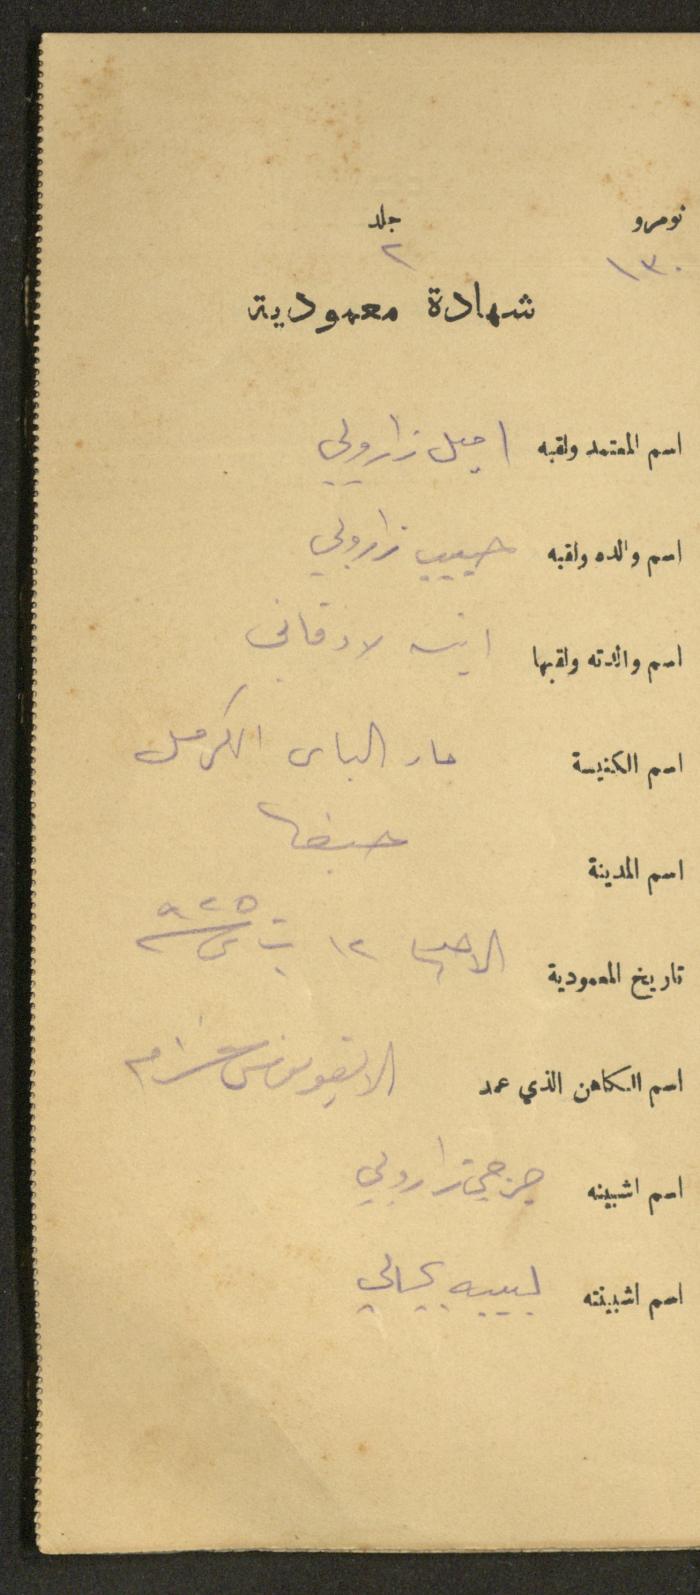 نومرو جلد
١٣٠ ٢
شهادة معمودية
اسم المعتمد ولقبه اميل زارولي
اسم والده ولقبه حبيب زارولي
اسم والدته ولقبها انيسه لاذقاني
اسم الكنيسة مار الياس الكرمل
اسم المدينة حيفا
تاريخ المعمودية الاحد ١٢ ت ٩٢٥
اسم الكاهن الذي عمد
اسم اشبينه جرجي زارولي
اسم اشبينته لبيبه